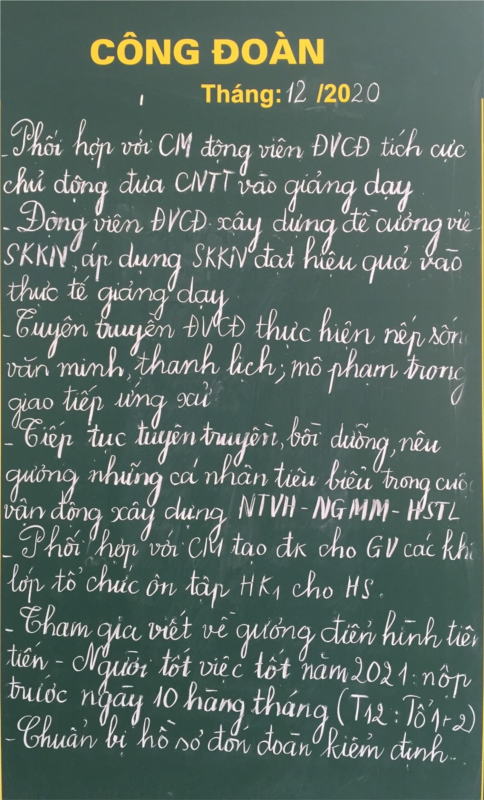 CÔNG ĐOÀN
Tháng: 12 /2020
- Phối hợp với CM động viên ĐVCĐ tích cực
chủ động đưa CNTT vào giảng dạy
- Động viên ĐVCĐ xây dựng đề cương viế
SKKN, áp dụng SKKN đạt hiệu quả vào
thực tế giảng dạy
- Tuyên truyền ĐVCĐ thực hiện nếp sốn
văn minh, thanh lịch; mô phạm trong
giao tiếp ứng xử
- Tiếp tục tuyên truyền, bồi dưỡng, nêu
gương những cá nhân tiêu biểu trong cuộ
vận động xây dựng NTVH - NGMM - HSTL
- Phối hợp với CM tạo đk cho GV các khố
lớp tổ chức ôn tập HK1 cho HS.
- Tham gia viết về gương điển hình tiên
tiến - Người tốt việc tốt năm 2021: nộp
trước ngày 10 hàng tháng (T12: Tổ 1+2)
- Chuẩn bị hồ sơ đón đoàn kiểm định...